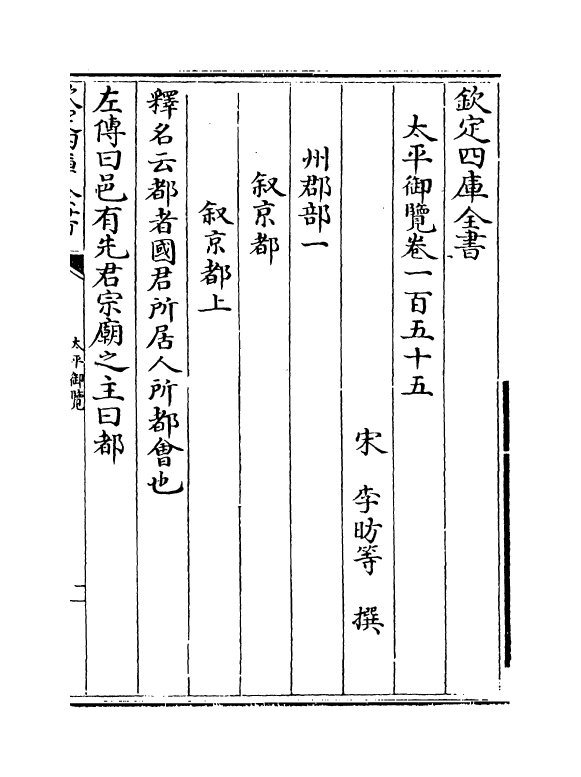 欽定四庫全書
太平御覽卷一百五十五
宋 李昉等 撰
州郡部一
叙京都
叙京都上
釋名云都者國君所居人所都會也
左傳曰邑有先君宗廟之主曰都
太平御覽